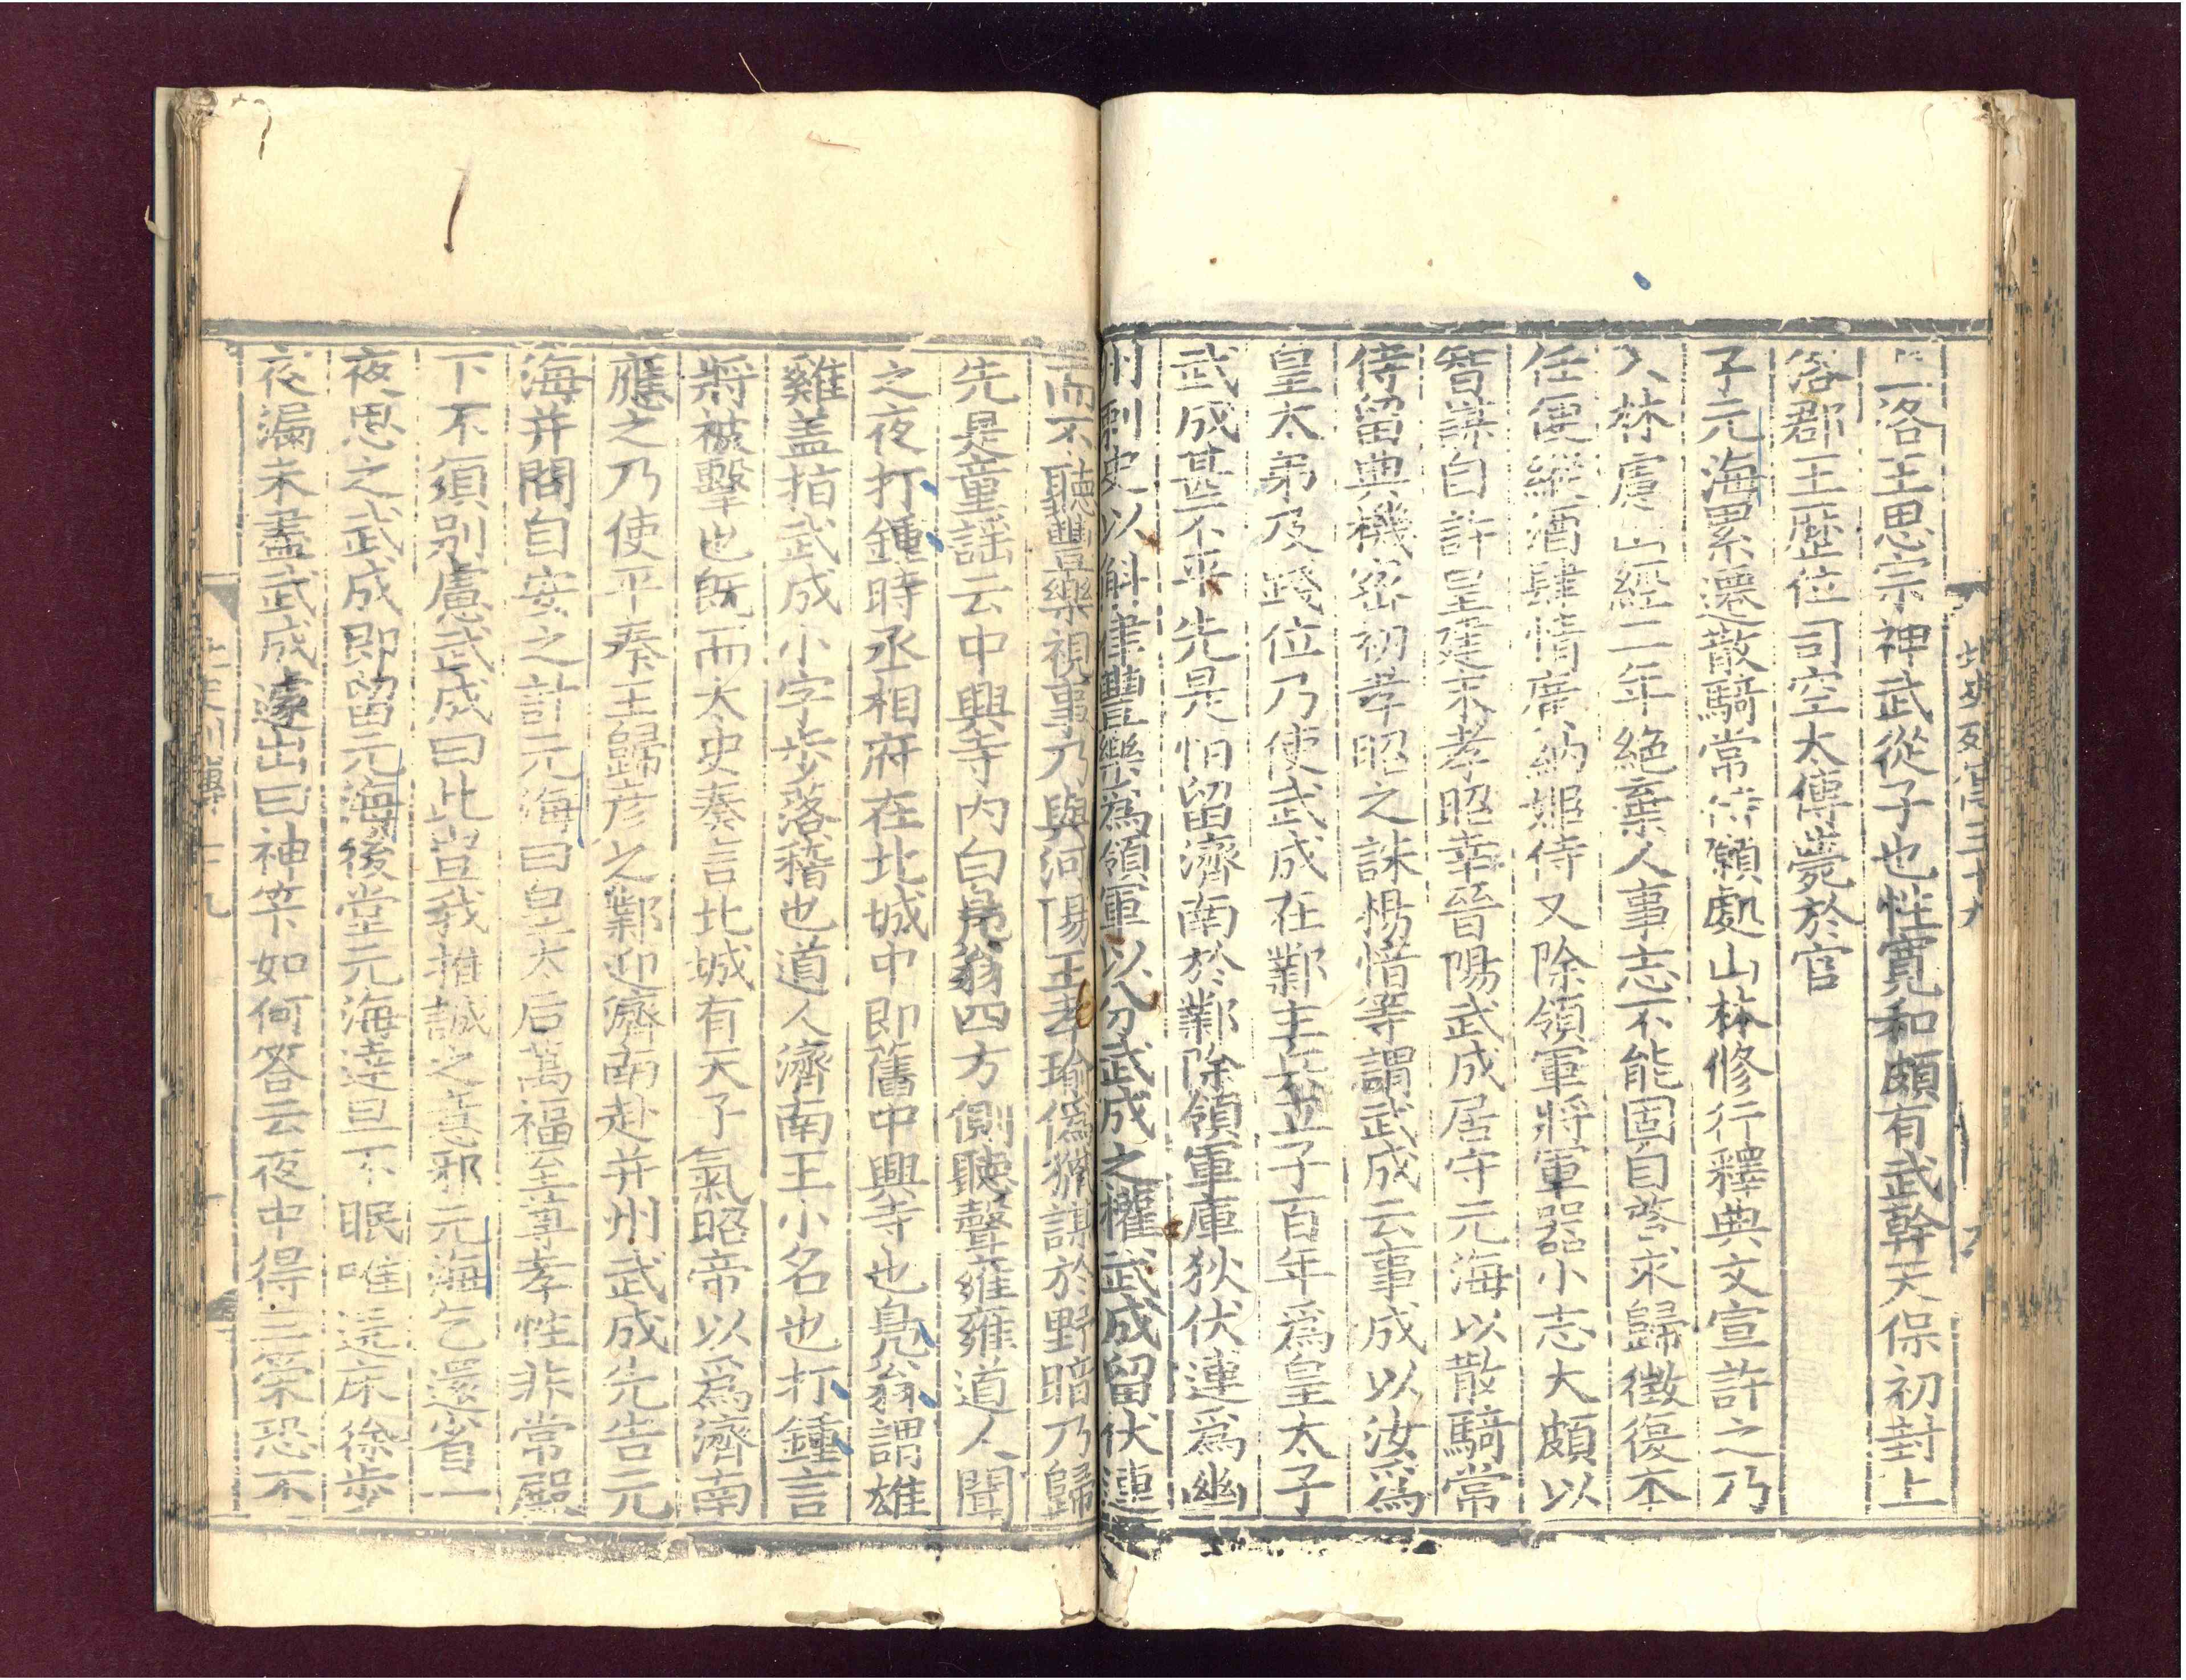 上洛王思宗神武從子也性寬和頗有武幹天保初封上
洛郡王歴位司空太傅薨於官
子元海累遷散騎常侍願處山林修行釋典文宣許之乃
入林慮山經二年絶棄人事志不能固自啓求歸徵復本
任便縱酒肆情廣納姬侍又除領軍將軍器小志大頗以
智謀自許皇建末孝昭幸晉陽武成居守元海以散騎常
侍留典機密初孝昭之誅楊愔等謂武成云事成以汝爲
皇太弟及踐位乃使武成在鄴主兵立子百年爲皇太子
武成甚不平先是恒留濟南於鄴除領軍庫狄伏連爲幽
州刺史以斛律豐樂為領軍以分武成之權武成留伏連
而不聽豐樂視事乃與河陽王孝瑜僞獵謀於野暗乃歸
先是童謡云中興寺内白鳧翁四方側聽聲雍雍道人聞
之夜打鍾時丞相府在北城中即舊中興寺也鳧翁謂雄
雞盖指武成小字歩落稽也道人濟南王小名也打鍾言
將被擊也既而太史奏言北城有天子氣昭帝以爲濟南
應之乃使平秦王歸彦之鄴迎濟南赴并州武成先告元
海并問自安之計元海曰皇太后萬福至尊孝性非常殿
下不須别慮武成曰此豈我推誠之意邪元海乞還省一
夜思之武成即留元海後堂元海達旦不眠唯遶床徐歩
夜漏未盡武成遽出曰神筭如何答云夜中得三策恐不